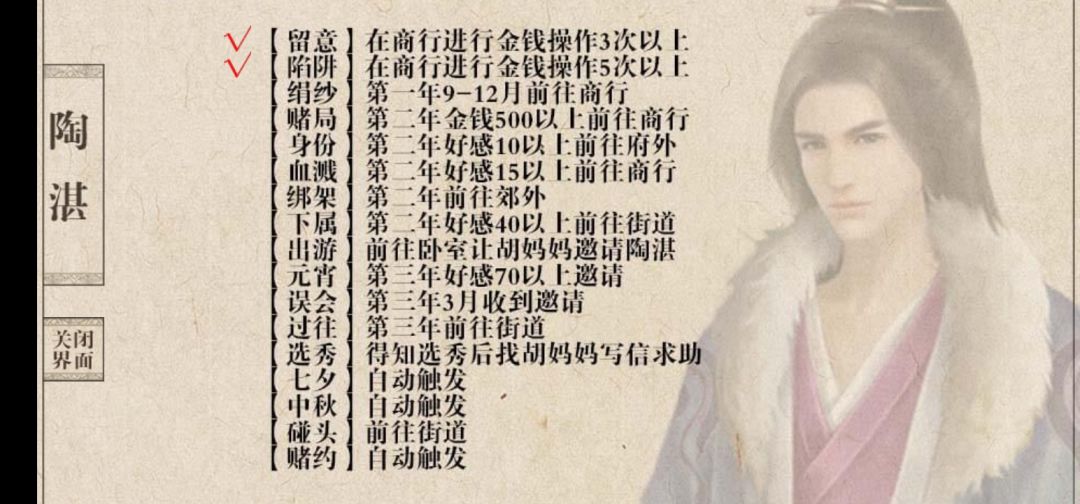 陶湛
关闭
界面
【留意】在商行进行金钱操作3次以上
【陷阱】在商行进行金钱操作5次以上
【绢纱】第一年9-12月前往商行
【赌局】第二年金钱500以上前往商行
【身份】第二年好感10以上前往府外
【血溅】第二年好感15以上前往商行
【绑架】第二年前往郊外
【下属】第二年好感40以上前往街道
【出游】前往卧室让胡妈妈邀请陶湛
【元宵】第三年好感70以上邀请
【误会】第三年3月收到邀请
【过往】第三年前往街道
【选秀】得知选秀后找胡妈妈写信求助
【七夕】自动触发
【中秋】自动触发
【碰头】前往街道
【赌约】自动触发